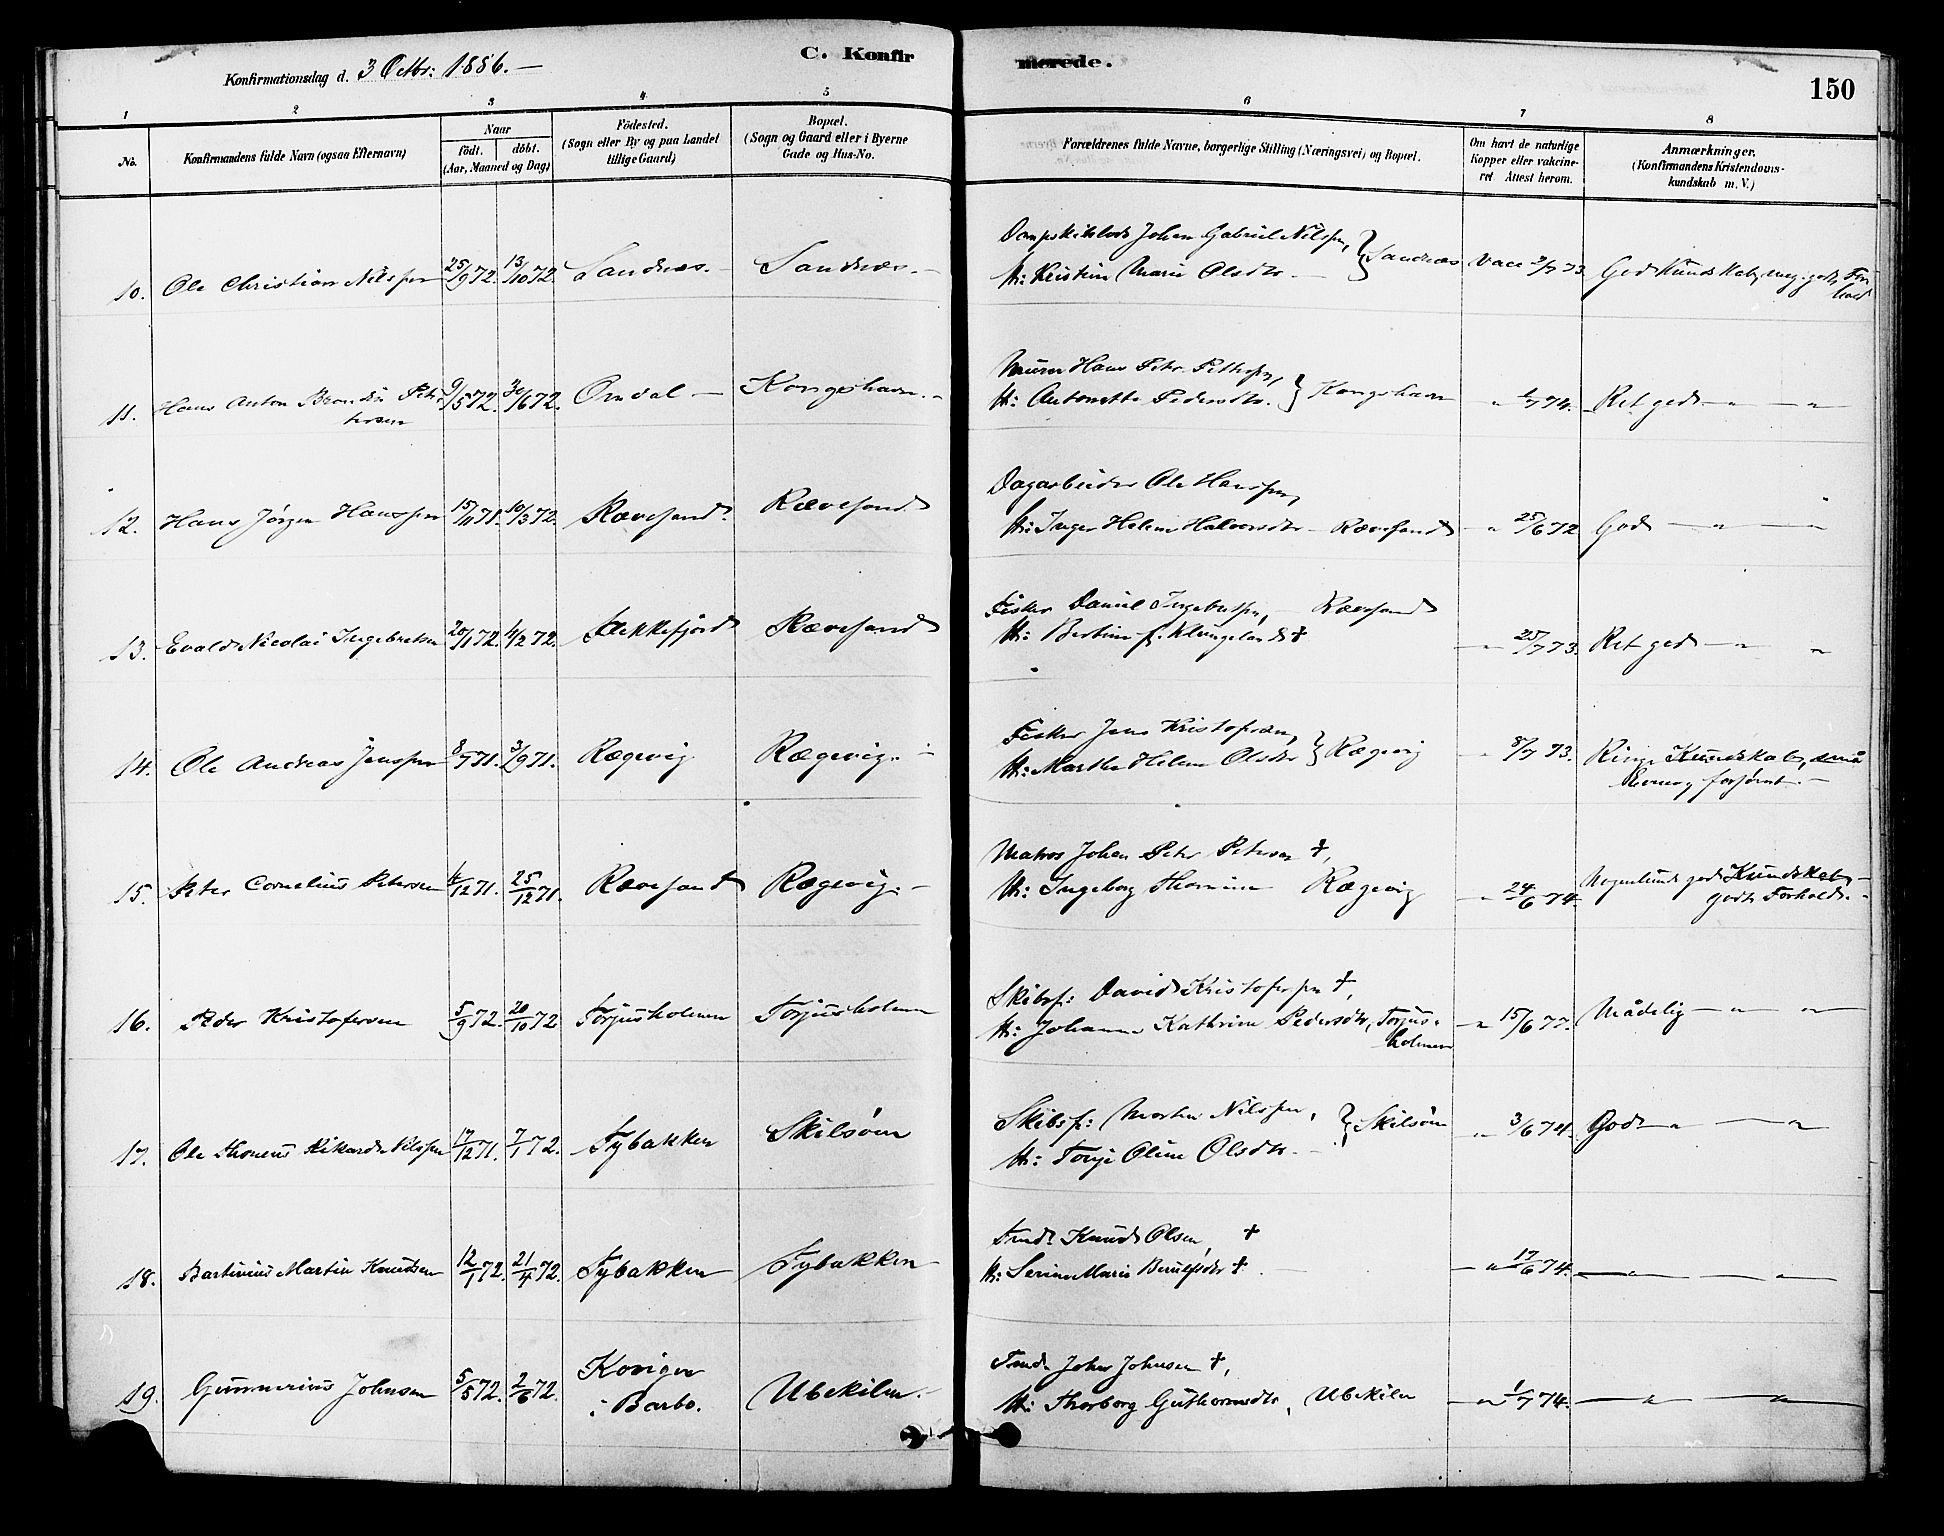 Konfirmationsdag d. 3 Octbr: 1886. —
C. Konfirmerede.
150
1 2 3 4 5 6 7 8
No.
Konfirmandens fulde Navn (ogsaa Efternavn)
Naar
födt. döbt.
(Aar, Maaned og Dag)
Födested.
(Sogn eller By og paa Landet
tillige Gaard)
Bopæl.
(Sogn og Gaard eller i Byerne
Gade og Hus-No.
Forældrenes fulde Navne, borgerlige Stilling (Næringsvei) og Bopæl.
Om havt de naturlige
Kopper eller vakcine-
ret Attest herom.
Anmærkninger.
(Konfirmandens Kristendoms-
kundskab m. V.)
10. Ole Christian Nilssen 25/9 72. 13/10 72. Sandnæs. — Sandnæs. —
Dampskibslods Johan Gabriel Nilssen,
H: Kristine Marie Olsdtr. — } Sandnæs Vacc 2/7 73 God Kundskab, meg. godt For
hold
11. Hans Anton Petersen 9/5 72. 30/6 72. Omdal — Kongshavn. —
Murer Hans Petter Pettersen,
H: Antonette Pedersdtr. } Kongshavn " /7 74. Ret god — " — "
12. Hans Jørgen Hanssen 15/11 71. 10/3 72. Rævesand. Rævesand
Dagarbeider Ole Hanssen,
H: Inger Helene Halvorsdtr — Rævesand — " 25/6 72 God — " — "
13. Evald Nicolai Ingebretsen 20/1 72. 4/2 72. Flekkefjord Rævesand
Fisker Daniel Ingebretsen, — Rævesand
H: Bertine f. Klungeland † — " 25/7 73. Ret god — " "
14. Ole Andreas Jenssen 8/7 71. 3/9 71. Rægevig Rægevig. —
Fisker Jens Kristofersen,
H: Marthe Helene Olsdtr } Rægevig " 8/7 73. Ringe Kundskab, små
Evner og forsømt. —
15. Peter Cornelius Petersen /12 71. 25/12 71. Rævesand Rægevig. —
Matros Johan Peter Petersen †,
H: Ingeborg Thomine Rægevig — " 24/6 74. Nogenlunde god Kundskab —
godt Forhold. —
16. Peder Kristofersen 5/9 72. 20/10 72 Torjusholmen Torjusholmen
Skibsf: David Kristofersen †,
H: Johanne Kathrine Pedersdtr, Torjus-
holmen — " 15/6 77. Mådelig — " — "
17. Ole Thomas Rikard Nilssen 17/12 71. 7/1 72. Tybakken Skilsøen
Skibsf: Morten Nilssen,
H: Torje Oline Olsdtr. — } Skilsöen " 3/6 74. God — " — "
18. Bartinius Martin Knudsen 12/1 72. 21/4 72. Tybakken Tybakken
Tmdr Knud Olsen, †
H: Serine Marie † — " 17/6 74. — " — " —
19. Gunnerius Johnsen 5/5 72. 2/6 72. Kovigen
i Barbo. Ubekilen. —
Tmdr John Johnsen †,
H: Thorborg Guthormsdtr, Ubekilen — " 1/7 74. — " — " —